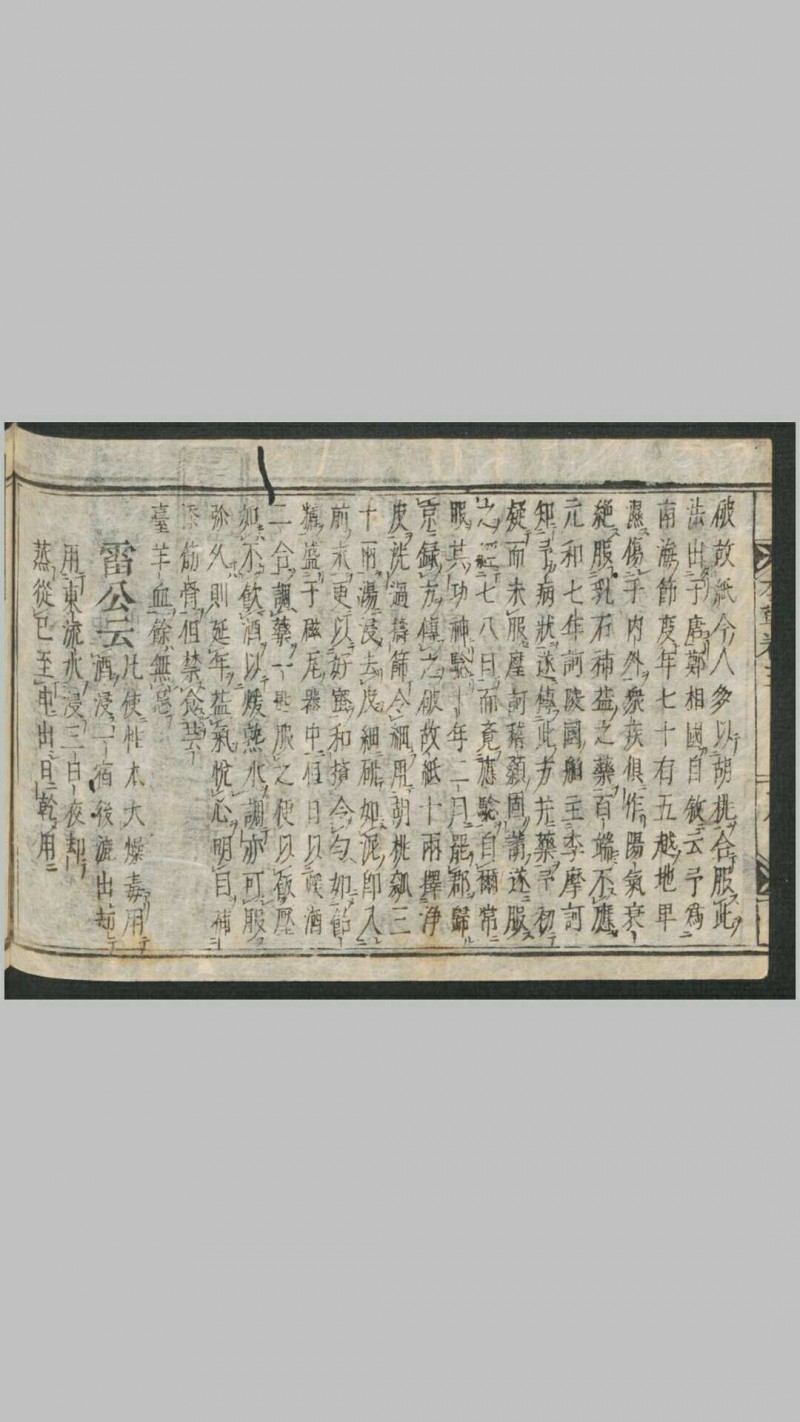 破故紙今人多以胡桃合服此
法出于唐鄭相國自敘云予為
南海節度年七十有五越地卑
濕傷于内外衆疾俱作陽氣衰
絶服乳石補益之藥百端不應
元和七年訶陵國舶主李摩訶
知予病狀遂傳此方并藥予初
疑而未服摩訶稽顙固請遂服
之經七八日而竟應驗自爾常
服其功神驗十年二月罷郡歸
京録方傳之破故紙十兩擇淨
皮洗過擣篩令細用胡桃瓤三
十兩湯浸去皮細研如泥即入
前末更以好蜜和攪令勻如飴
糖盛于磁瓦器中恒日以煖酒
二合調藥一匙服之便以飯壓
如不飲酒以煖熟水調亦可服
弥久則延年益氣悅心明目補
添筋骨但禁食芸
臺羊血餘無忌
雷公云凡使性本大燥毒用
酒浸一宿後漉出却
用東流水浸三日夜却
蒸從巳至申出日乾用